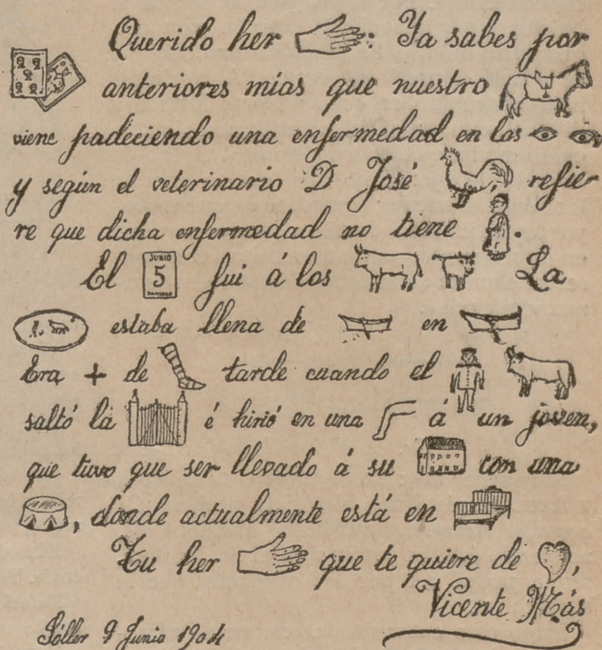 Querido her : Ya sabes por
anteriores mías que nuestro
viene padeciendo una enfermedad en los
y según el veterinario D José refie-
re que dicha enfermedad no tiene .
El JUNIO 5 fui á los La
estaba llena de en
Era + de tarde cuando el
saltó la é hirió en una á un joven,
que tuvo que ser llevado á su con una
, donde actualmente está en
Tu her que te quiere de ,
Vicente Más
Sóller 9 Junio 1904